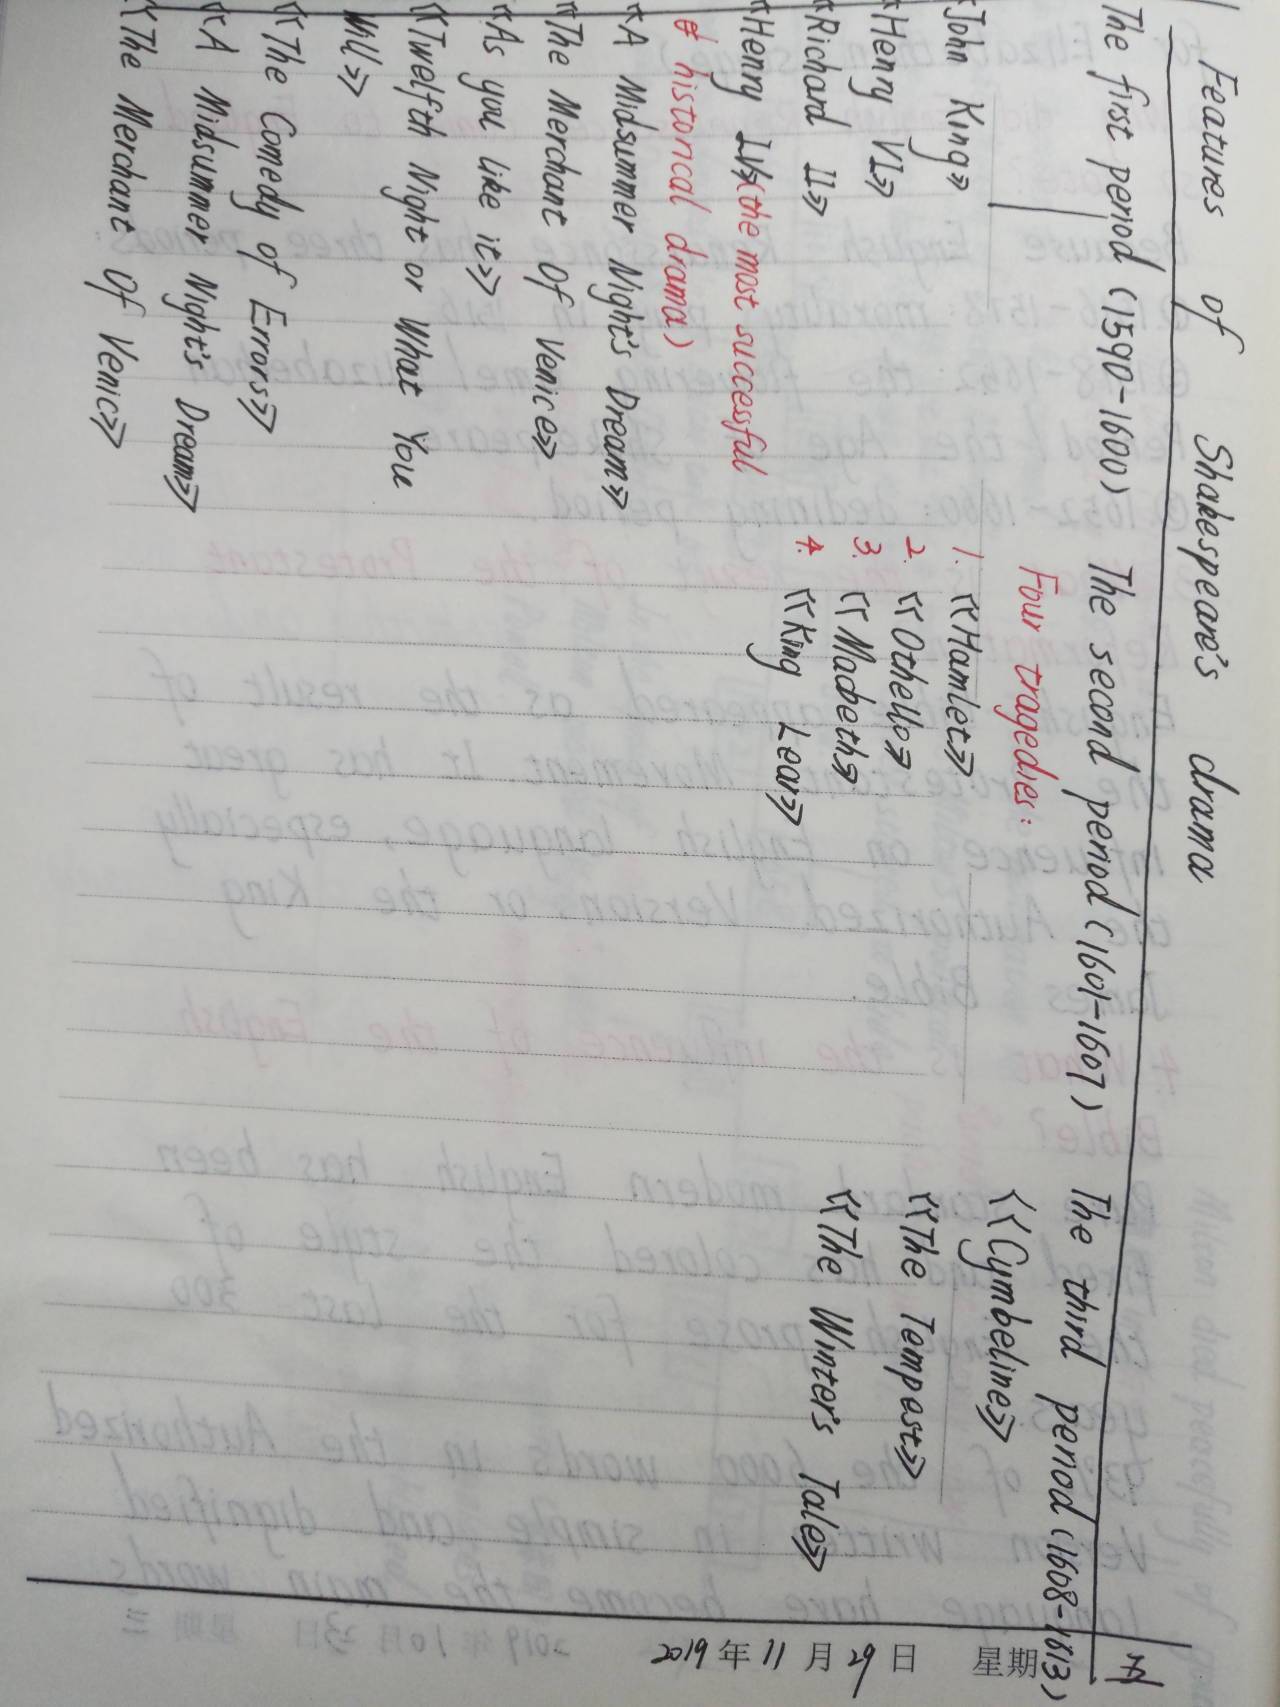 Features of Shakespeare's drama
The first period (1590-1600)
《John King》
《Henry VI》
《Richard II》
《Henry IV》(the most successful
historical drama)
《A Midsummer Night's Dream》
《The Merchant Of Venice》
《As you like it》
《Twelfth Night or What You
Will》
《The Comedy of Errors》
《A Midsummer Night's Dream》
《The Merchant Of Venic》
The second period (1601-1607)
Four tragedies:
1. 《Hamlet》
2. 《Othello》
3. 《Macbeth》
4. 《King Lear》
The third period (1608-1613)
《Cymbeline》
《The Tempest》
《The Winter's Tale》
2019年11月29日 星期五